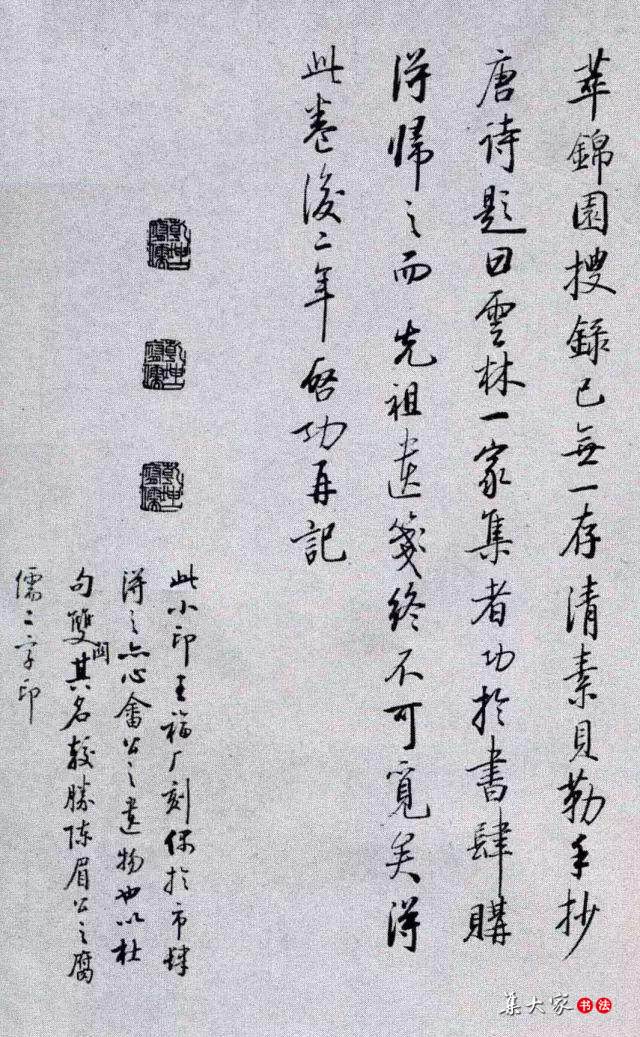 萃錦園搜錄已無一存清素貝勒手抄
唐詩題曰雲林一家集者功於書肆購
得歸之而先祖遺箋終不可覓矣得
此卷後二年啓功再記
此小印王福厂刻偶於市肆
得之心畬公之遺物也以杜
句雙關其名較勝陳眉公之腐
儒二字印
集大家书法